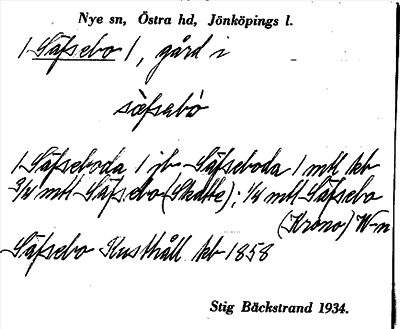 Nye sn, Östra hd, Jönköpings l.
/ Säfsebo /, gård i
säfsebo
/ Säfseboda / jb Säfseboda 1 mtl kb
3/4 mtl Säfsebo (Skatte); 1/4 mtl Säfsebo
(Krono) W-n
Säfsebo Rusthåll kb 1858
Stig Bäckstrand 1934.